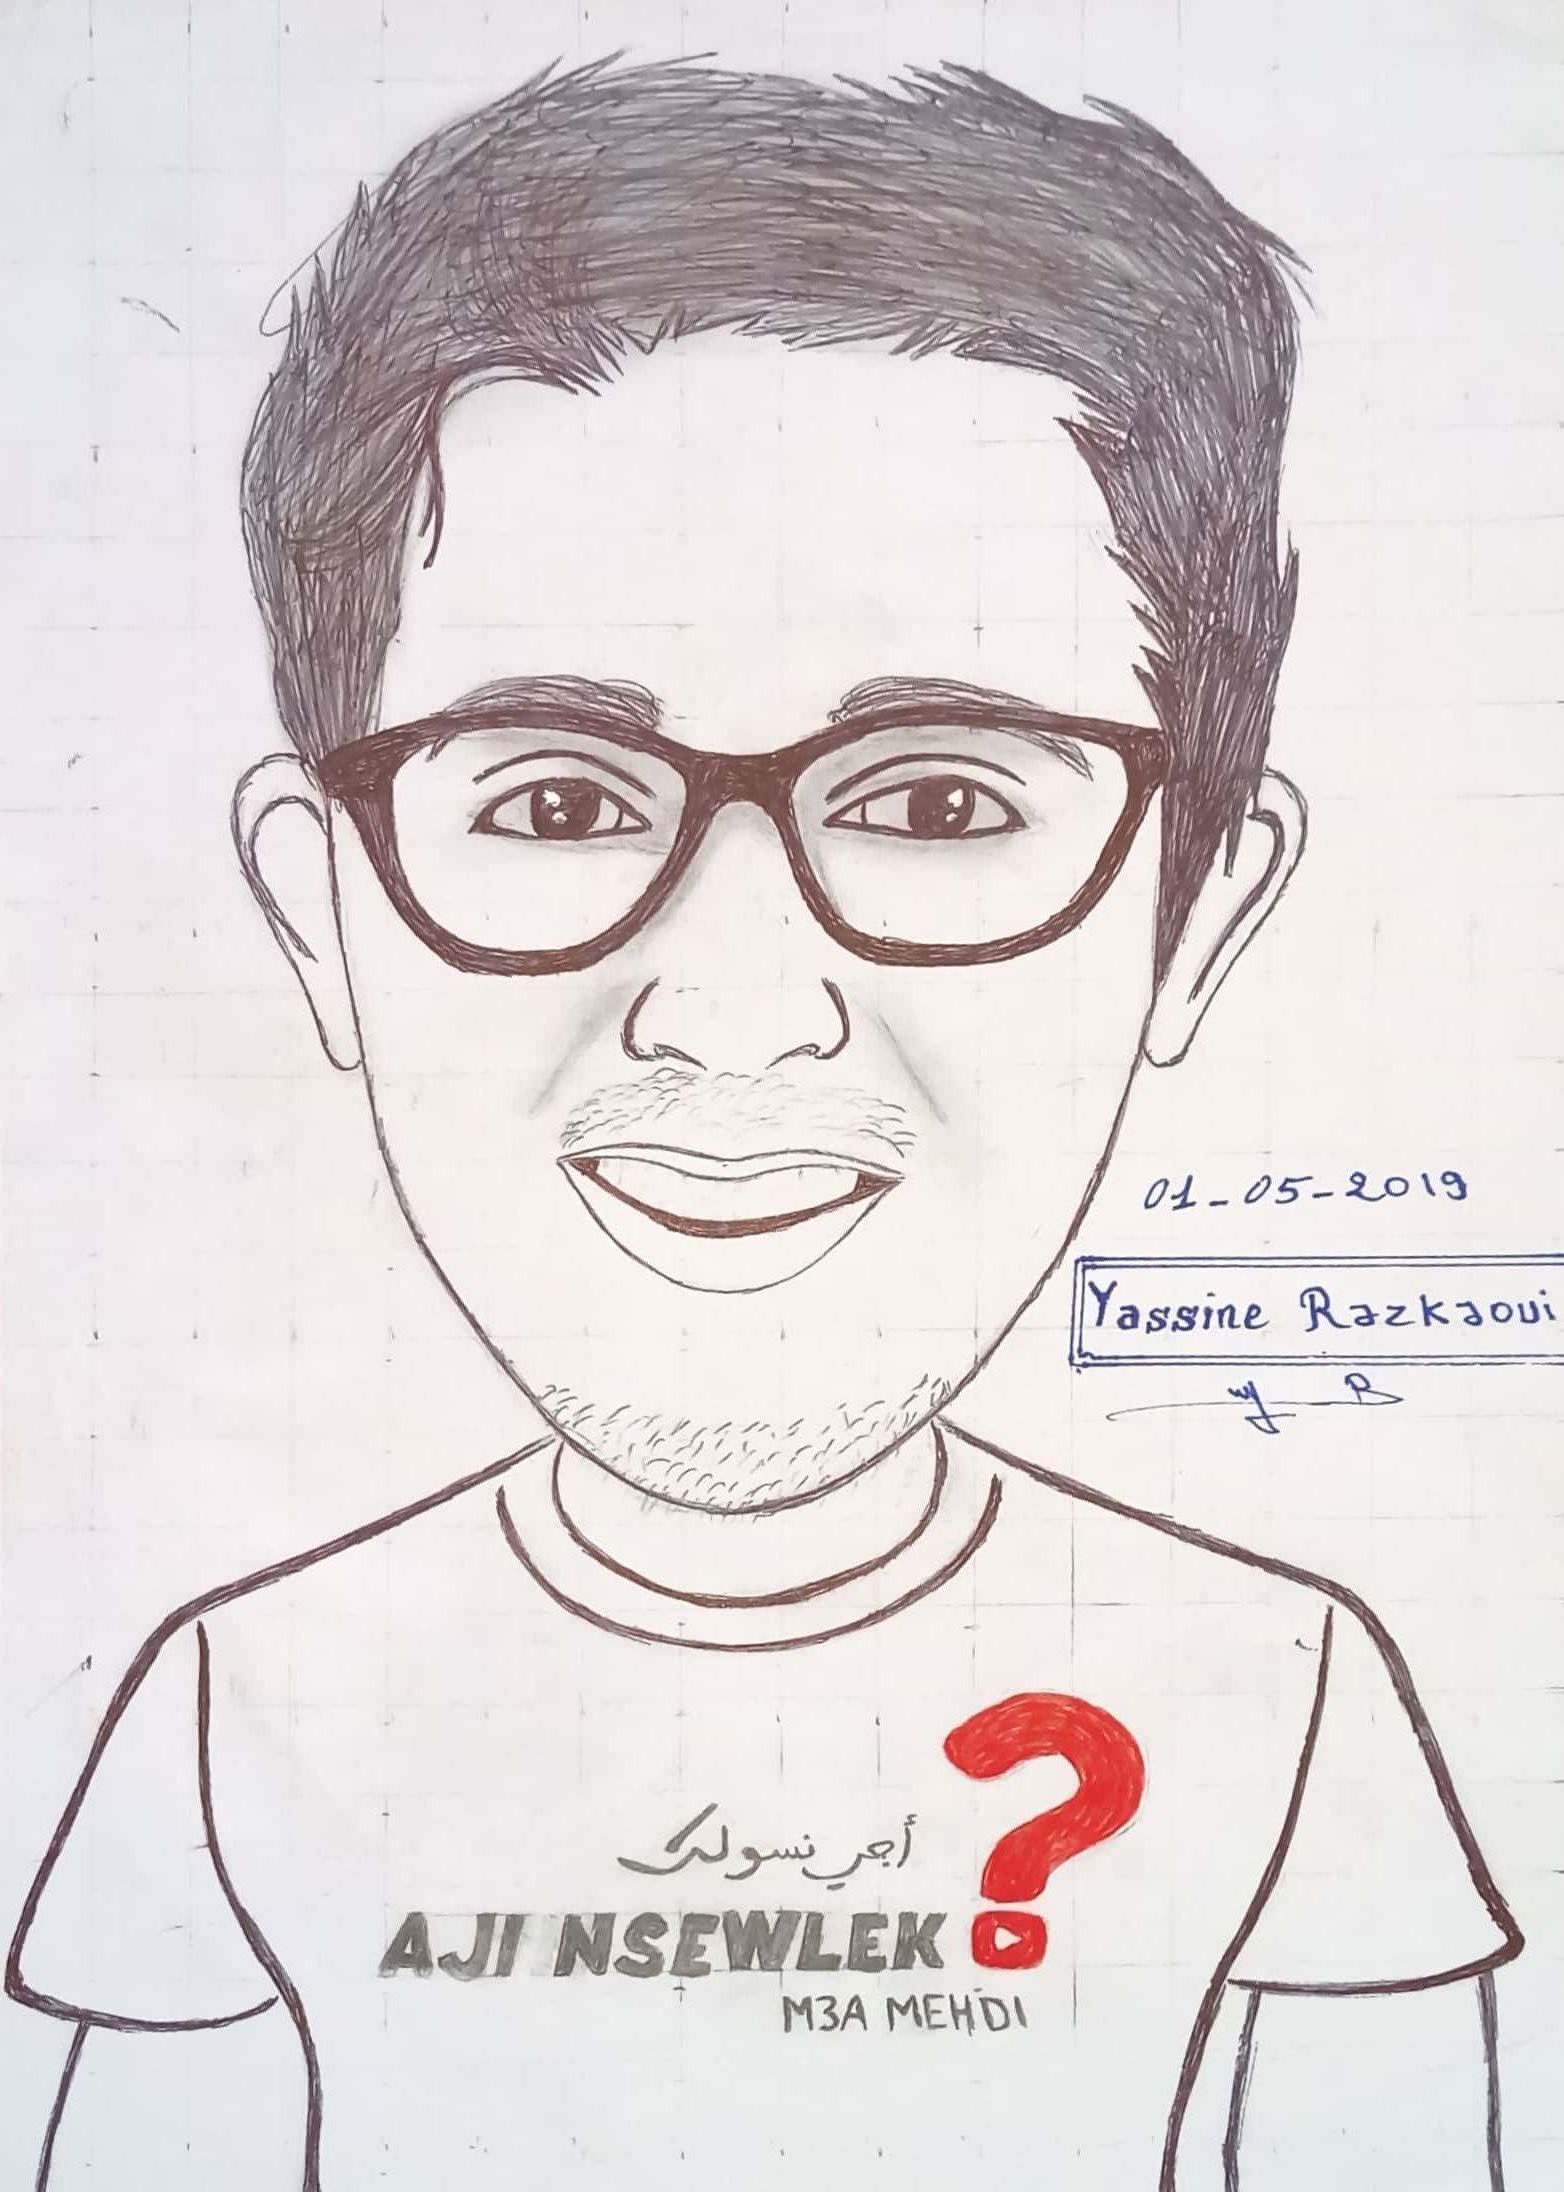 01-05-2019
Yassine Razkaoui
أجي نسولك
AJI NSEWLEK ?
M3A MEHDI